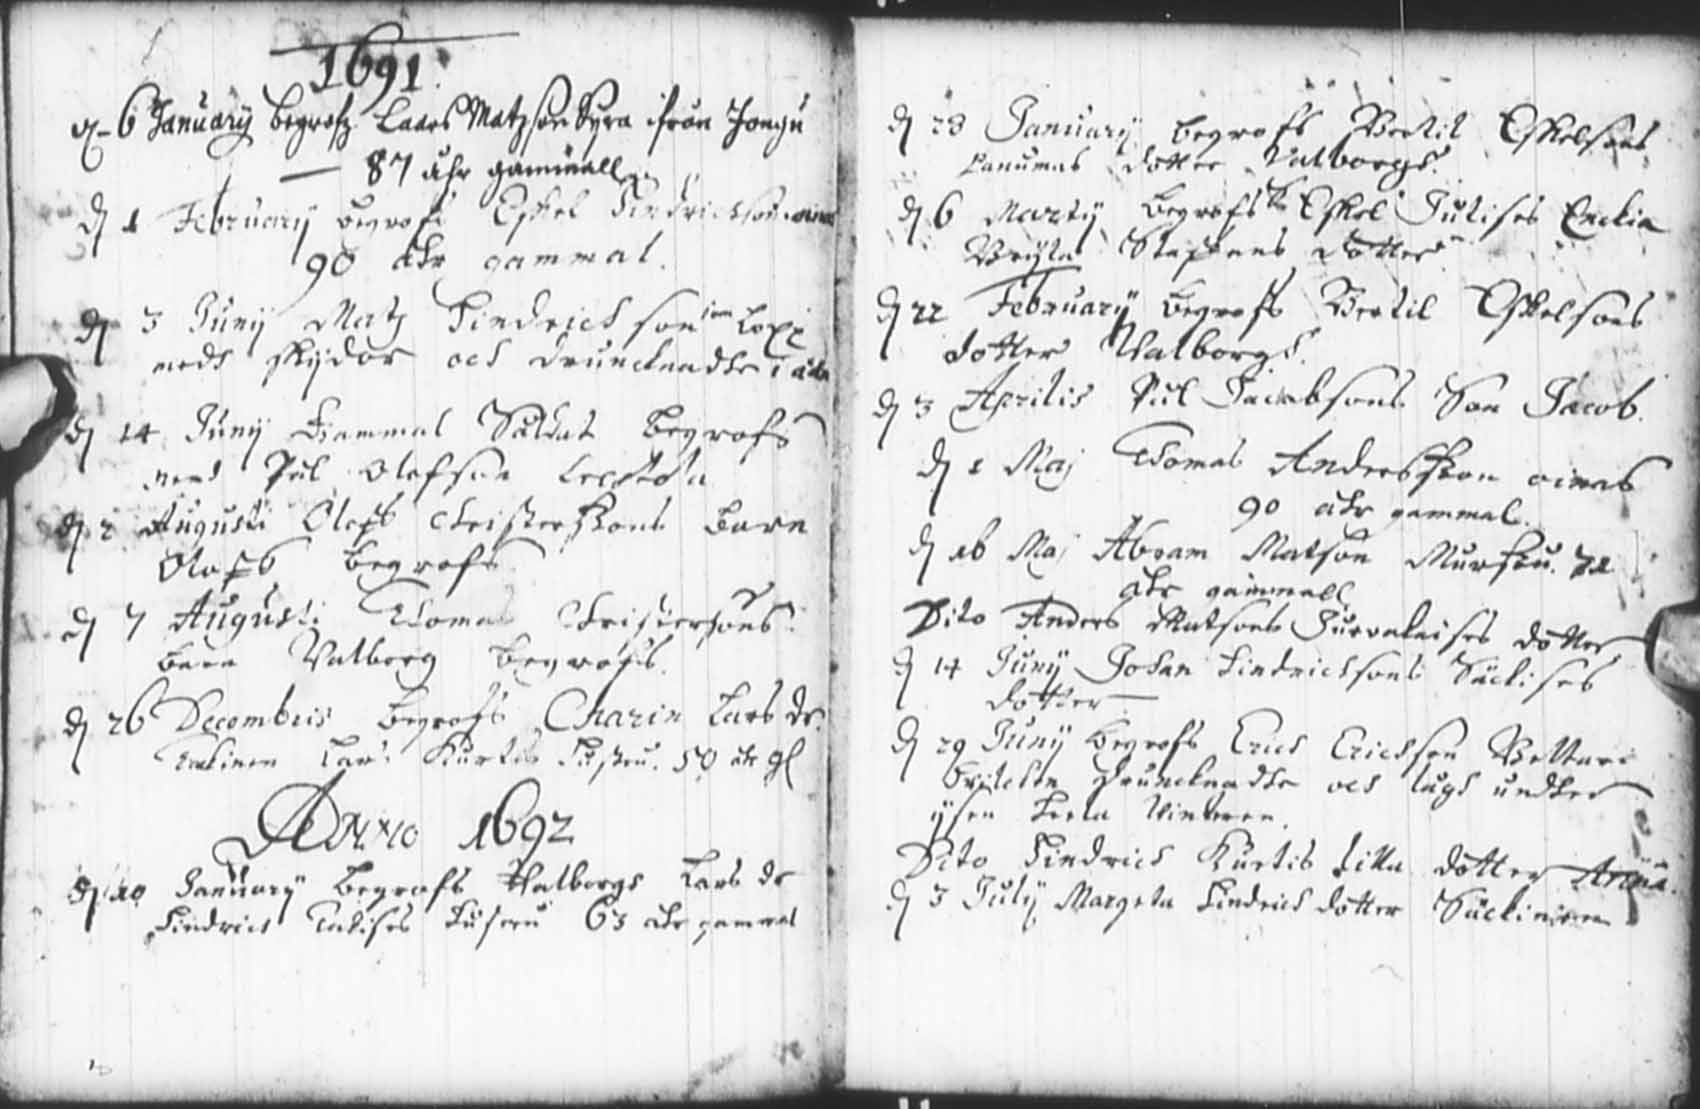 1691
d 6 January begrofz Laars Matzson Syra ifrån
87 åhr gammall
d 1 February begrofs Eskel Hindrichson
90 åhr gammal.
d 3 Juny Matz Hindrichson som Lopp
medh skydor och drunchnadhe i
d 14 Juny Gammal Såldat begrofs
Pål Olofson
d 2 Augusti Olofs Christerssons barn
Olofs begrofs
d 7 Augusti Thomas Christersons
barn Valborg begrofs.
d 26 Decembris begrofs Charin Lars dr.
Lars Kurtis Husfru. 50 åhr gl
ANNO 1692
d 10 January begrofs Valborgh Lars dr
Hindrich husfru 63 åhr gammal
d 23 January begrofs Bertil Eskelsons
dotter Valborgh.
d 6 Marty begrofs Eskel Enckia
Bryta Staffans dotter
d 22 February begrofs Bertil Eskelsons
dotter Valborgh.
d 3 Aprilis Pål Jacobsons Son Jacob.
d 1 Maj Thomas Andersson oinas
90 åhr gammal.
d 16 Maj Abram Matson 72
åhr gammall
Dito Anders Matsons dotter
d 14 Juny Johan Hindrichsons Säckises
dotter
d 29 Juny begrofs Erich Erichson
drunchnadhe och lågh undher
ysen heela Winteren.
Dito Hindrich Kurtis lilla dotter Anna.
d 3 July Margeta Hindrich dotter Säckinen